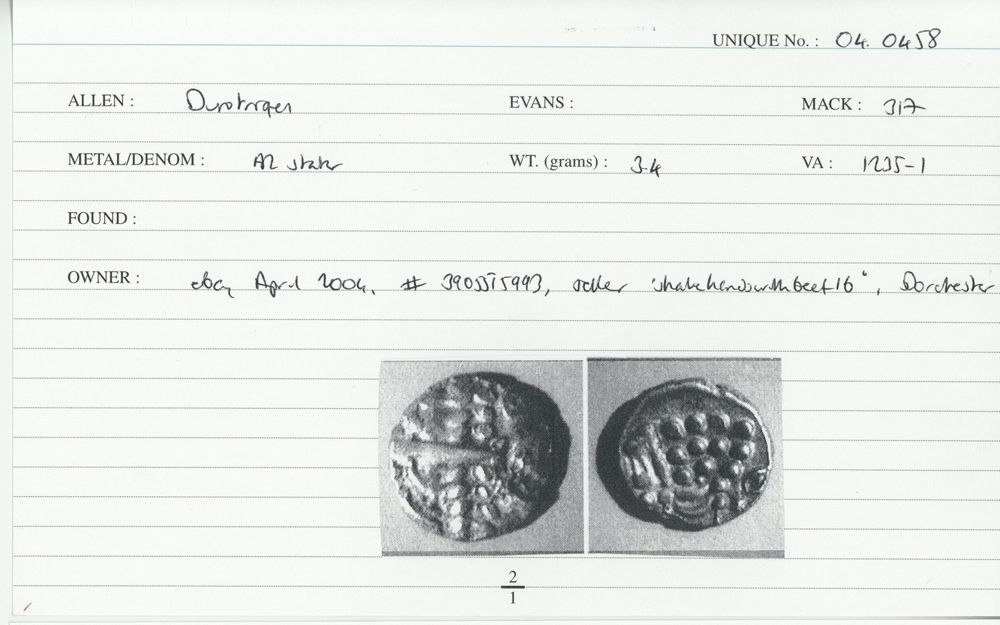 UNIQUE No. : 04. 0458
ALLEN : Durotriges EVANS : MACK : 317
METAL/DENOM : AR stater WT. (grams) : 3.4 VA : 1235-1
FOUND :
OWNER : ebay April 2004, # 3905515993, seller "shakehandswithbeef16", Dorchester
2
1